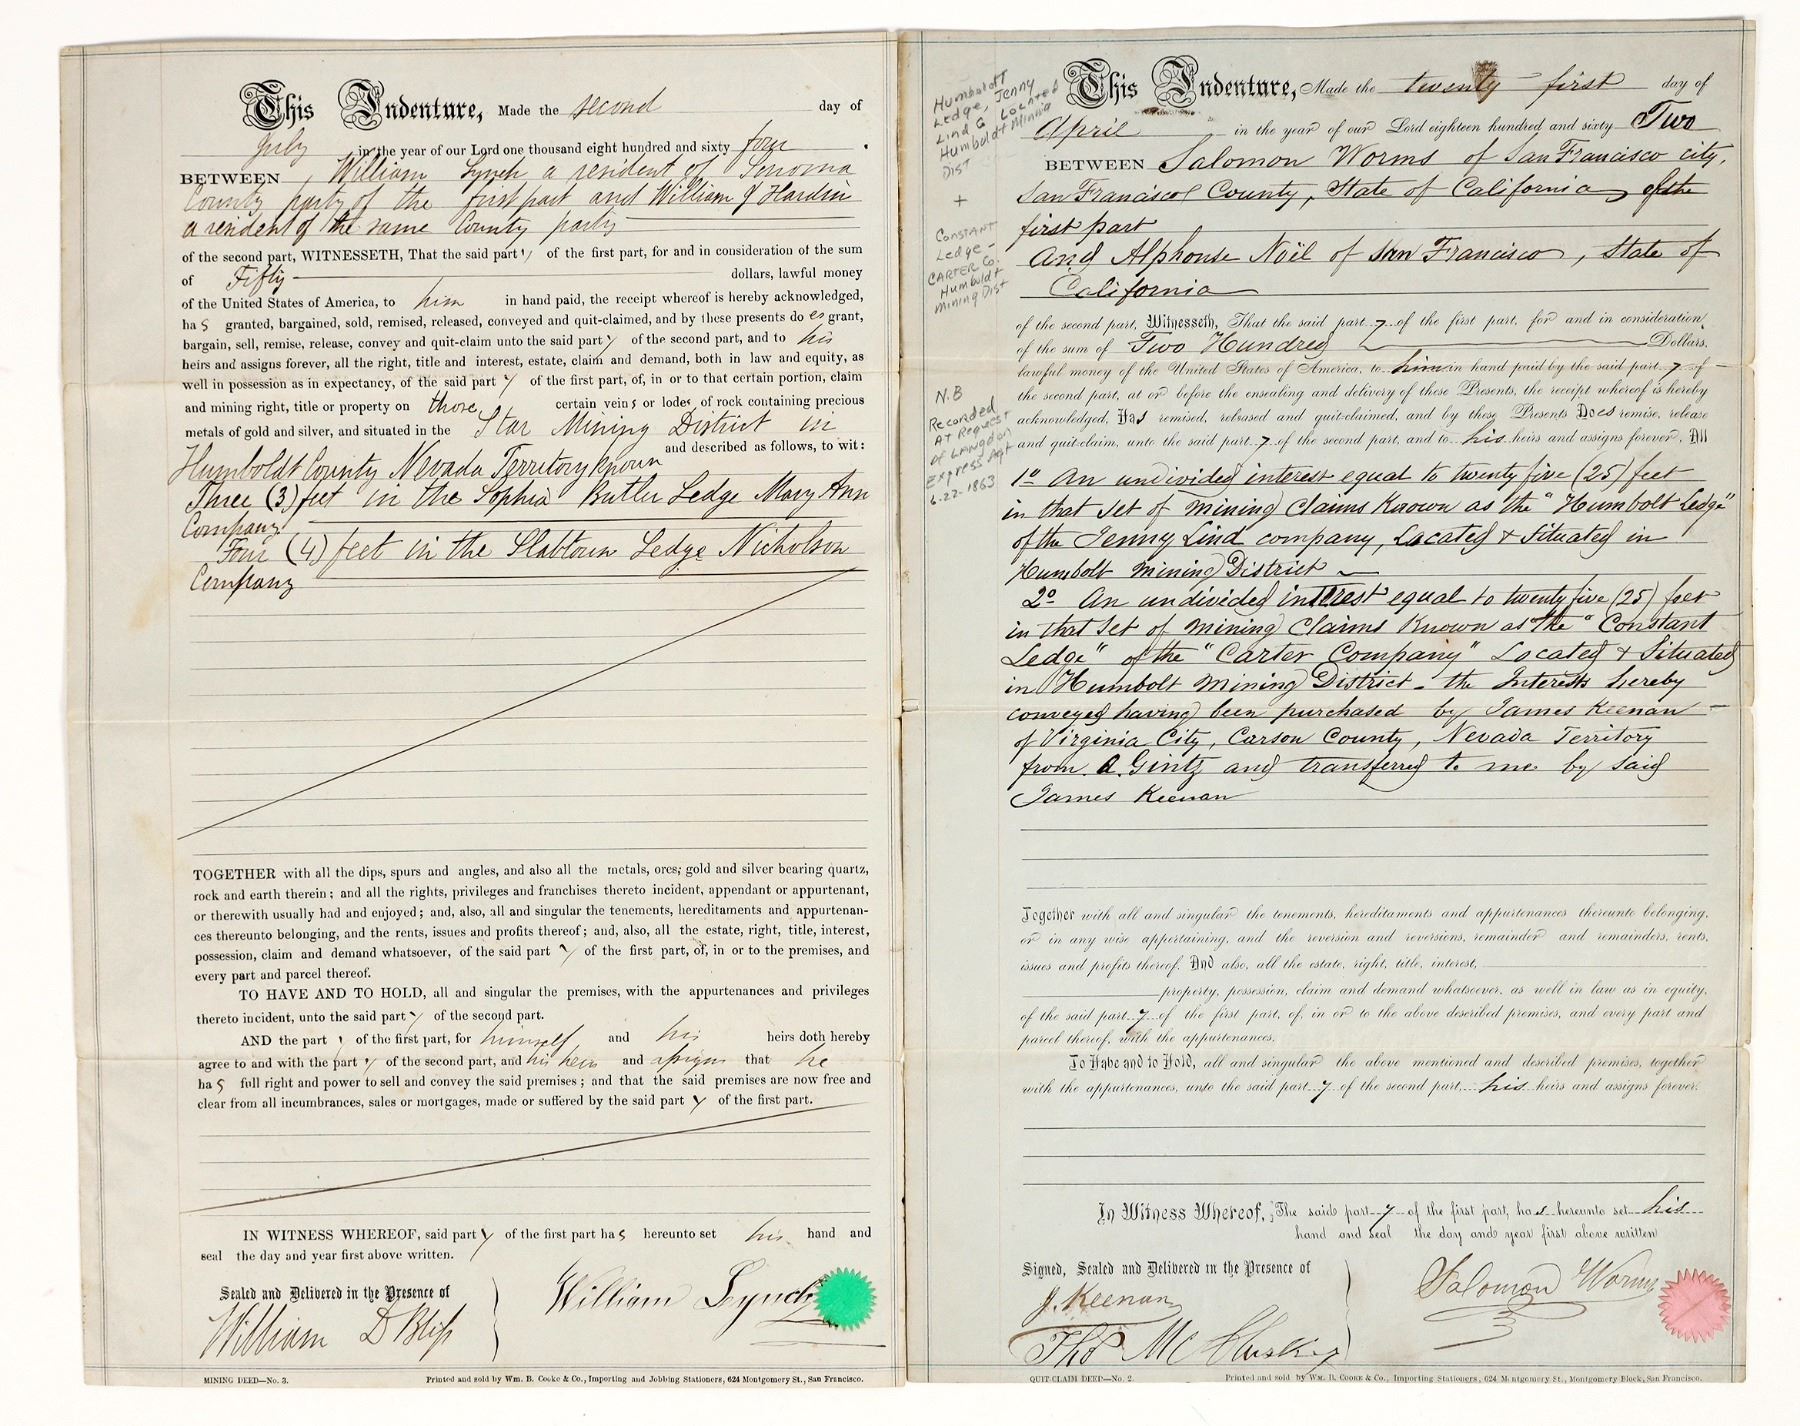 This Indenture, Made the second day of
July in the year of our Lord one thousand eight hundred and sixty four
BETWEEN William Lynch a resident of Sonoma
County party of the first part and William J Hardin
a resident of the same County party
of the second part, WITNESSETH, That the said party of the first part, for and in consideration of the sum
of Fifty dollars, lawful money
of the United States of America, to him in hand paid, the receipt whereof is hereby acknowledged,
has granted, bargained, sold, remised, released, conveyed and quit-claimed, and by these presents do es grant,
bargain, sell, remise, release, convey and quit-claim unto the said party of the second part, and to his
heirs and assigns forever, all the right, title and interest, estate, claim and demand, both in law and equity, as
well in possession as in expectancy, of the said party of the first part, of, in or to that certain portion, claim
and mining right, title or property on those certain veins or lodes of rock containing precious
metals of gold and silver, and situated in the Star Mining District in
and described as follows, to wit:
Humboldt County Nevada Territory known
Three (3) feet in the Sophia Butler Ledge Mary Ann
Company
Four (4) feet in the Slabtown Ledge Nicholson
Company
TOGETHER with all the dips, spurs and angles, and also all the metals, ores, gold and silver bearing quartz,
rock and earth therein; and all the rights, privileges and franchises thereto incident, appendant or appurtenant,
or therewith usually had and enjoyed; and, also, all and singular the tenements, hereditaments and appurtenan-
ces thereunto belonging, and the rents, issues and profits thereof; and, also, all the estate, right, title, interest,
possession, claim and demand whatsoever, of the said party of the first part, of, in or to the premises, and
every part and parcel thereof.
TO HAVE AND TO HOLD, all and singular the premises, with the appurtenances and privileges
thereto incident, unto the said party of the second part.
AND the party of the first part, for himself and his heirs doth hereby
agree to and with the party of the second part, and his heirs and assigns that he
has full right and power to sell and convey the said premises; and that the said premises are now free and
clear from all incumbrances, sales or mortgages, made or suffered by the said party of the first part.
IN WITNESS WHEREOF, said party of the first part has hereunto set his hand and
seal the day and year first above written.
Sealed and Delivered in the Presence of
William D Bliss
William Lynch
MINING DEED—No. 3. Printed and sold by Wm. B. Cooke & Co., Importing and Jobbing Stationers, 624 Montgomery St., San Francisco.
Humboldt
Ledge, Jenny
Lind Co Located
Humboldt Minnia
Dist
+
Constant
Ledge -
CARTER Co.
Humboldt
Mining Dist
N.B
Recorded
AT Request
of LANgdon
Express Agt
6-22-1863
This Indenture, Made the twenty first day of
April in the year of our Lord eighteen hundred and sixty Two
BETWEEN Salomon Worms of San Francisco city,
San Francisco County, State of California of the
first part
And Alphonse Noël of San Francisco, State of
California
of the second part, Witnesseth, That the said party of the first part, for and in consideration
of the sum of Two Hundred Dollars,
lawful money of the United States of America, to him in hand paid by the said party of
the second part, at or before the ensealing and delivery of these Presents, the receipt whereof is hereby
acknowledged, Has remised, released and quit-claimed, and by these Presents Does remise, release
and quit-claim, unto the said party of the second part, and to his heirs and assigns forever, All
1º An undivided interest equal to twenty five (25) feet
in that Set of Mining Claims Known as the "Humbolt Ledge"
of the Jenny Lind company, Located & Situated in
Humbolt Mining District
2º An undivided interest equal to twenty five (25) feet
in that Set of Mining Claims Known as the "Constant
Ledge" of the "Carter Company" Located & Situated
in Humbolt Mining District - the Interests hereby
conveyed having been purchased by James Keenan
of Virginia City, Carson County, Nevada Territory
from A. Gintz and transferred to me by Said
James Keenan
Together with all and singular the tenements, hereditaments and appurtenances thereunto belonging,
or in any wise appertaining, and the reversion and reversions, remainder and remainders, rents,
issues and profits thereof. And also, all the estate, right, title, interest,
property, possession, claim and demand whatsoever, as well in law as in equity,
of the said party of the first part, of, in or to the above described premises, and every part and
parcel thereof, with the appurtenances.
To Have and to Hold, all and singular the above mentioned and described premises, together
with the appurtenances, unto the said party of the second part, his heirs and assigns forever.
In Witness Whereof, The said party of the first part, has hereunto set his
hand and seal the day and year first above written
Signed, Sealed and Delivered in the Presence of
J. Keenan
Thos McCluskey
Salomon Worms
QUIT CLAIM DEED—No. 2. Printed and sold by WM. B. COOKE & Co., Importing Stationers, 624 Montgomery St., Montgomery Block, San Francisco.